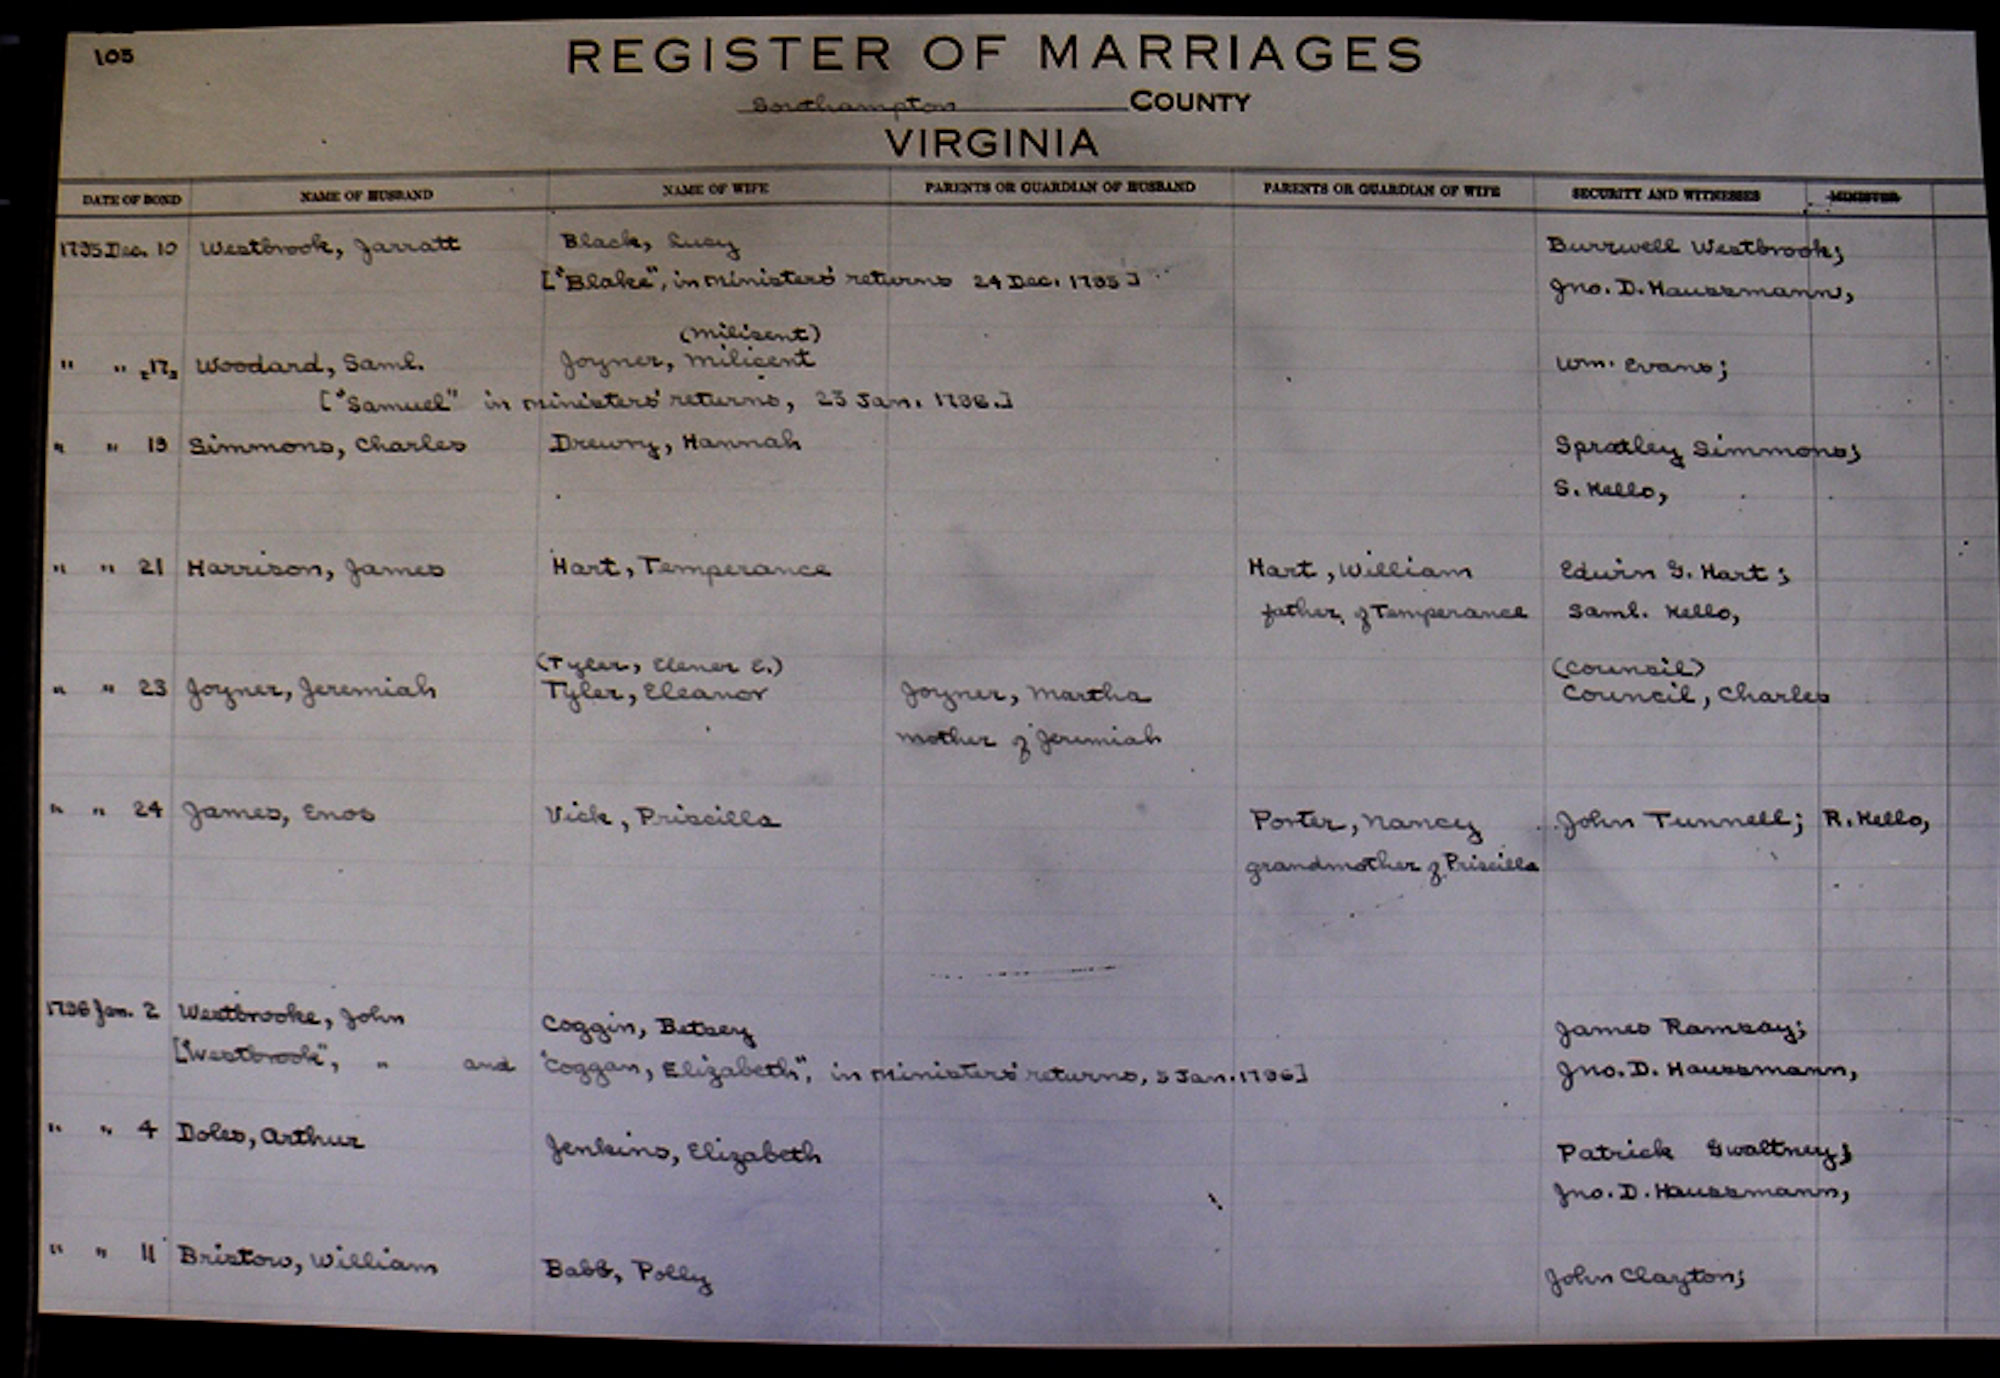 105
REGISTER OF MARRIAGES
Southampton COUNTY
VIRGINIA
DATE OF BOND NAME OF HUSBAND NAME OF WIFE PARENTS OR GUARDIAN OF HUSBAND PARENTS OR GUARDIAN OF WIFE SECURITY AND WITNESSES MINISTER
1795 Dec. 10 Westbrook, Jarratt Black, Lucy Burrwell Westbrook;
["Blake", in ministers' returns 24 Dec. 1795] Jno. D. Haussmann,
(Milisent)
" " 17, Woodard, Saml. Joyner, Milicent Wm. Evans;
["Samuel" in ministers' returns, 23 Jan. 1796.]
" " 19 Simmons, Charles Drewry, Hannah Spratley Simmons;
S. Kello,
" " 21 Harrison, James Hart, Temperance Hart, William Edwin G. Hart;
father of Temperance Saml. Kello,
(Tyler, Elener E.) (Council)
" " 23 Joyner, Jeremiah Tyler, Eleanor Joyner, Martha Council, Charles
mother of Jeremiah
" " 24 James, Enos Vick, Priscilla Porter, Nancy John Tunnell; R. Kello,
grandmother of Priscilla
1796 Jan. 2 Westbrooke, John Coggin, Betsey James Ramsay;
["Westbrook", " and "Coggan, Elizabeth", in ministers' returns, 5 Jan. 1796] Jno. D. Haussmann,
" " 4 Doles, Arthur Jenkins, Elizabeth Patrick Gwaltney;
Jno. D. Haussmann,
" " 11 Bristow, William Babb, Polly John Clayton;